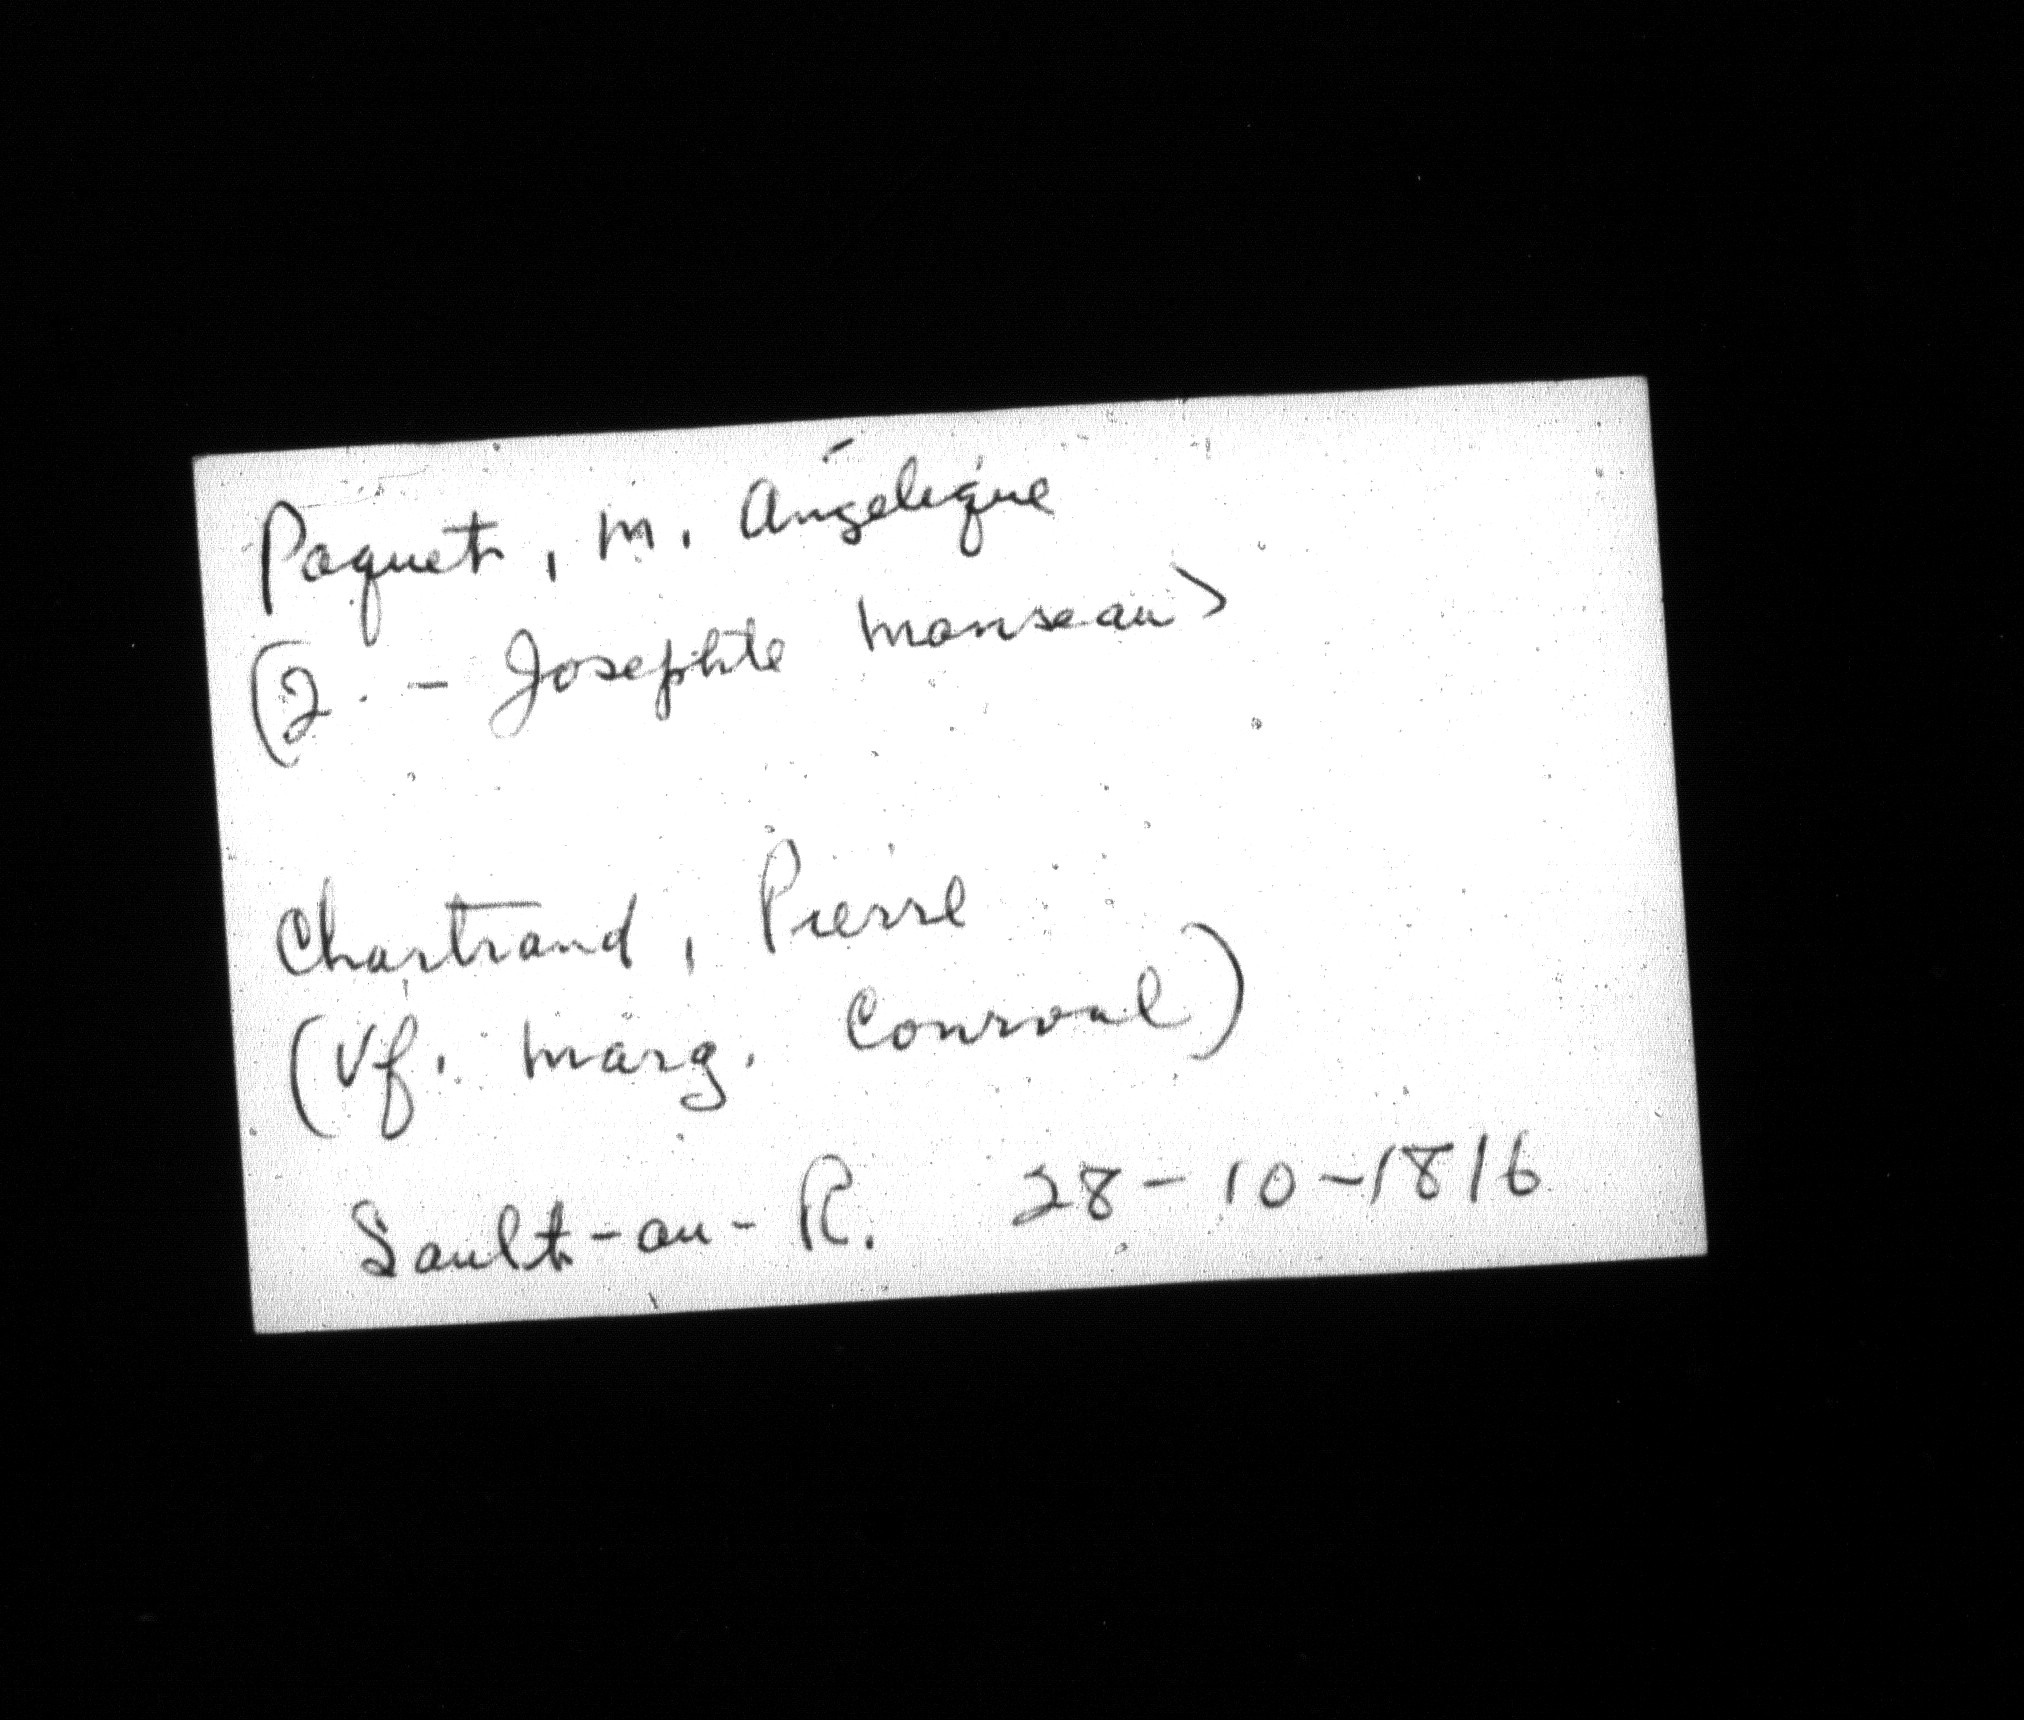 Paquet, M. Angélique
(2. - Josephte Manseau)
Chartrand, Pierre
(Vf. Marg. Conroal)
Sault-au-R. 28-10-1816